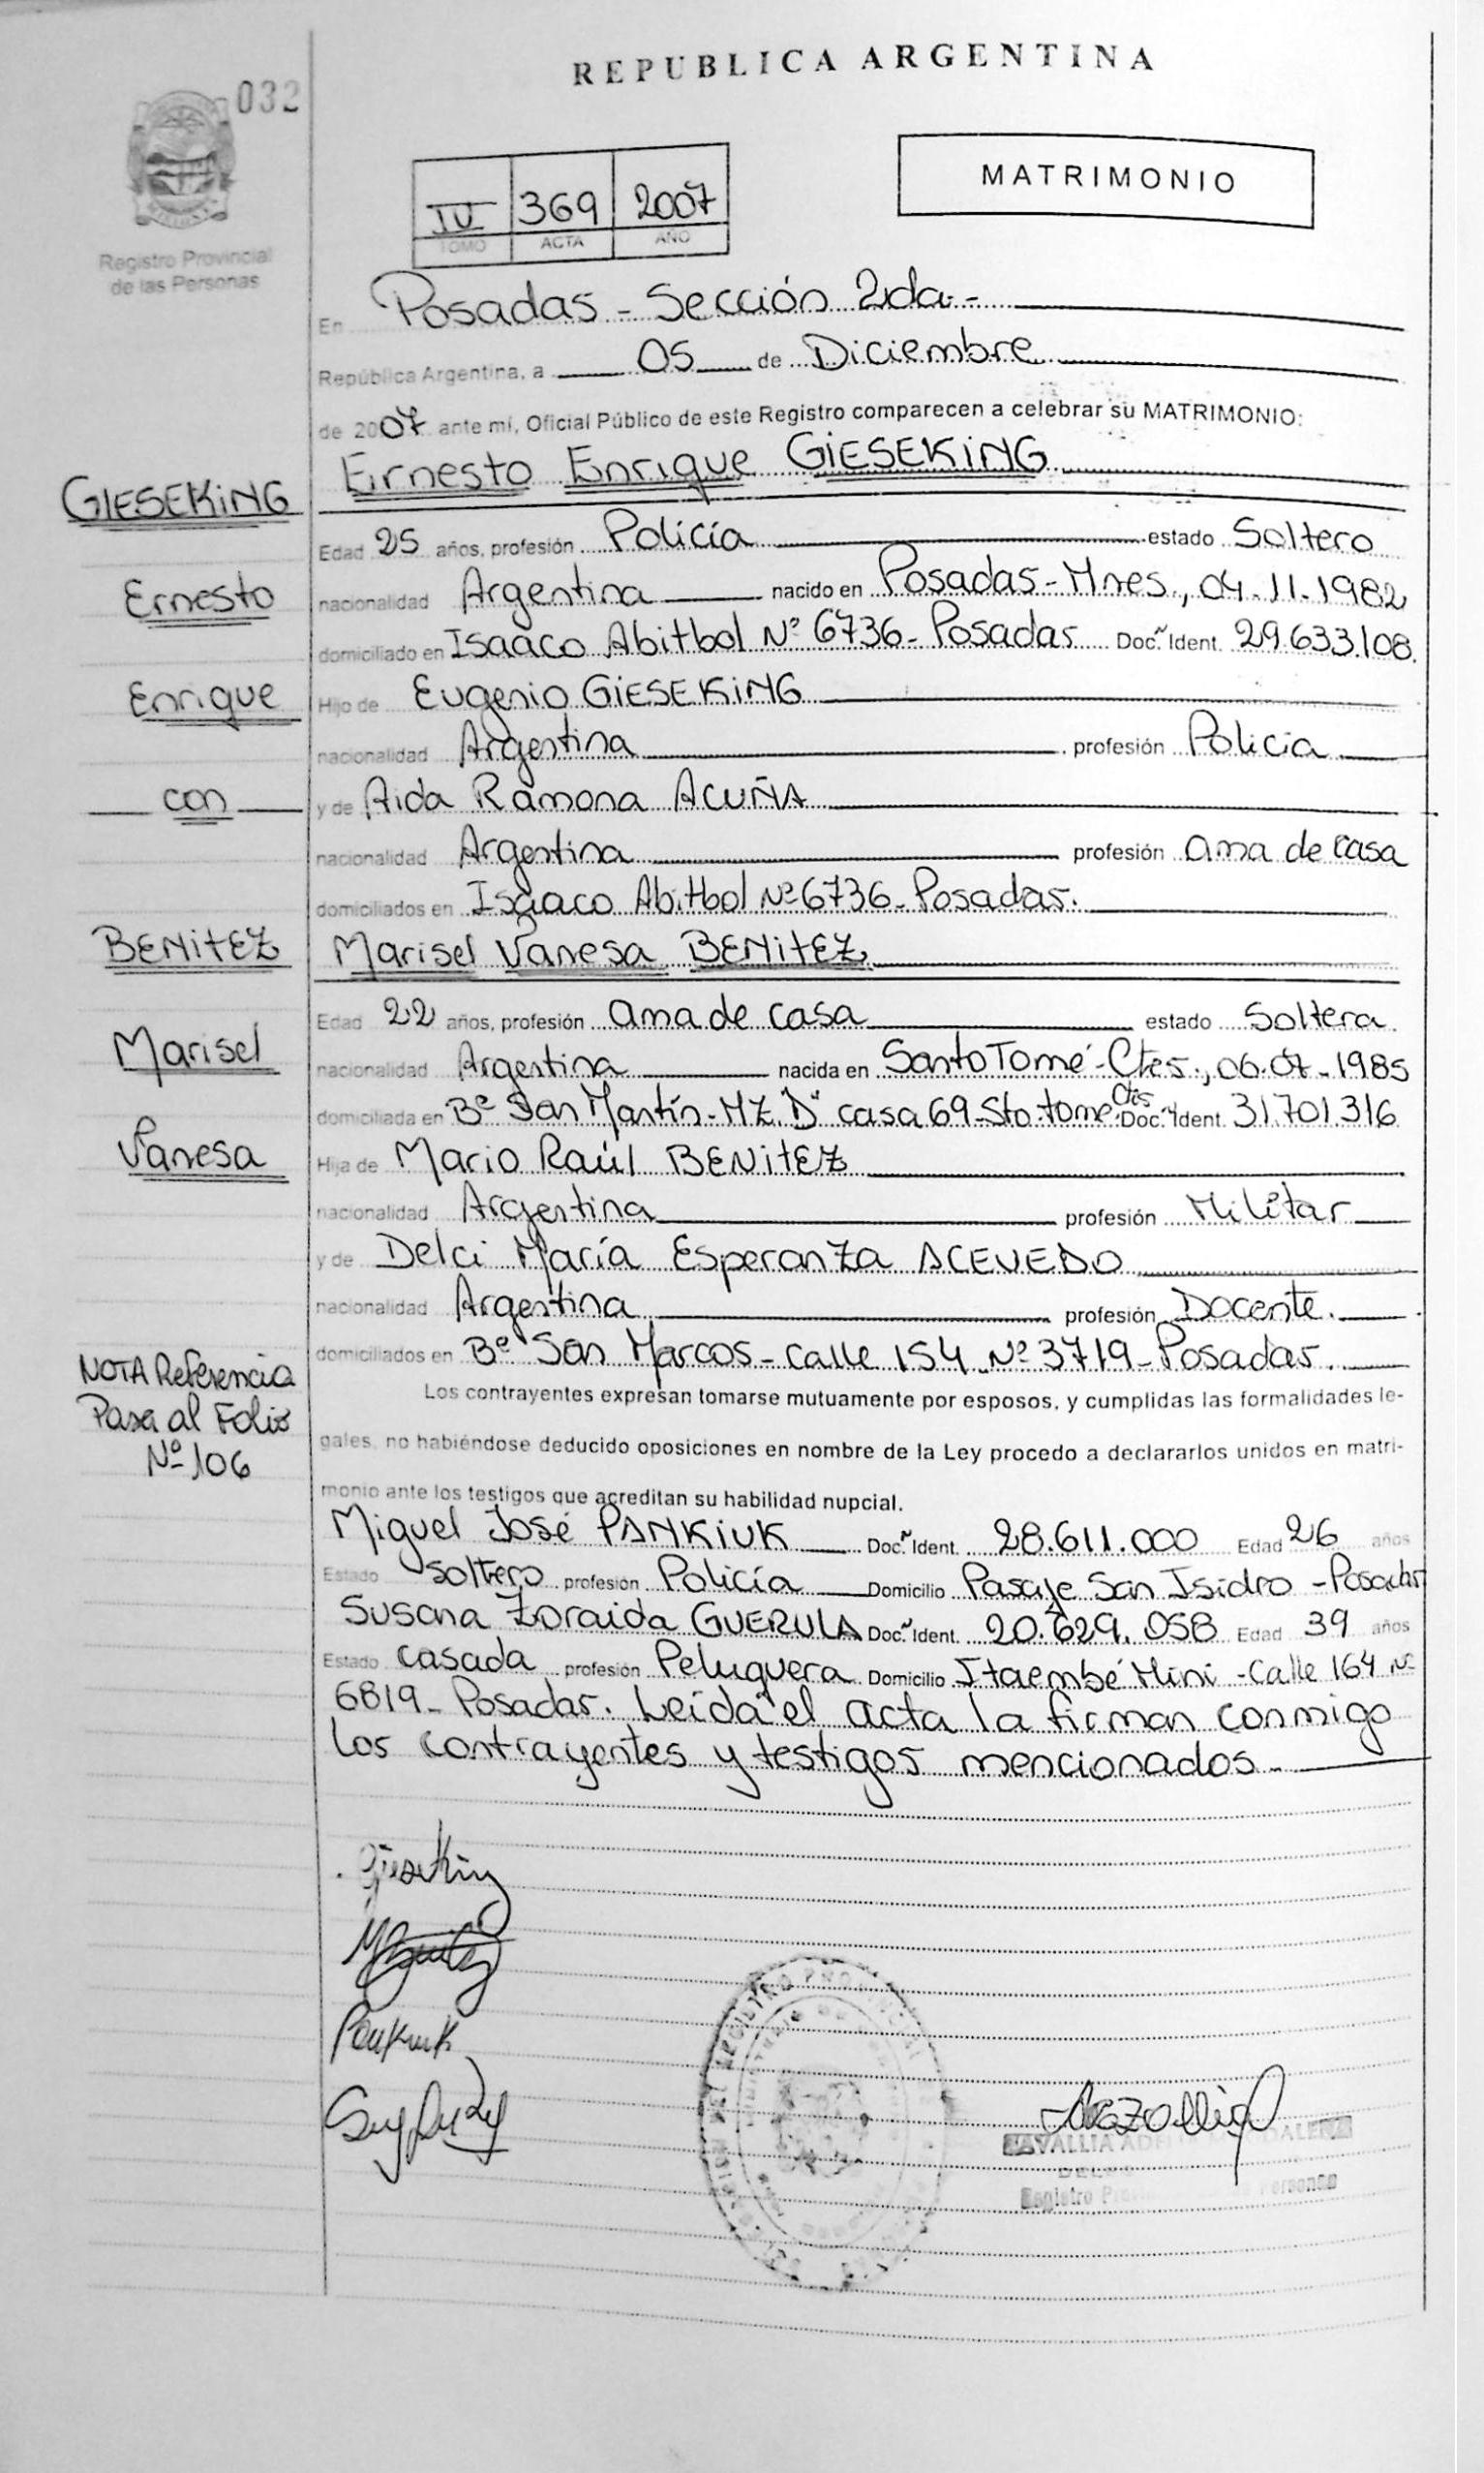 REPUBLICA ARGENTINA
032
MATRIMONIO
IV 369 2007
TOMO ACTA AÑO
Registro Provincial
de las Personas
En Posadas - Sección 2da -
República Argentina, a 05 de Diciembre
de 2007 ante mí, Oficial Público de este Registro comparecen a celebrar su MATRIMONIO:
Ernesto Enrique GIESEKING
GIESEKING
Edad 25 años, profesión Policía estado Soltero
Ernesto
nacionalidad Argentina nacido en Posadas - Mnes., 04.11.1982
domiciliado en Isaaco Abitbol Nº 6736 - Posadas Doc. Ident. 29.633.108.
Enrique
Hijo de Eugenio GIESEKING
nacionalidad Argentina, profesión Policía
con
y de Aida Ramona ACUÑA
nacionalidad Argentina profesión ama de casa
domiciliados en Isaaco Abitbol Nº 6736 - Posadas.
BENITEZ
Marisel Vanesa BENITEZ
Edad 22 años, profesión ama de casa estado Soltera
Marisel
nacionalidad Argentina nacida en Santo Tomé - Ctes., 06.07-1985
domiciliada en Bº San Martín - MZ. "D" casa 69 - Sto. tome Ctes Doc. Ident. 31.701.316
Vanesa
Hija de Mario Raúl BENITEZ
nacionalidad Argentina profesión Militar
y de Delci María Esperanza ACEVEDO
nacionalidad Argentina profesión Docente.
domiciliados en Bº San Marcos - calle 154 Nº 3719 - Posadas.
NOTA Referencia
Pasa al Folio
Nº 106
Los contrayentes expresan tomarse mutuamente por esposos, y cumplidas las formalidades le-
gales, no habiéndose deducido oposiciones en nombre de la Ley procedo a declararlos unidos en matri-
monio ante los testigos que acreditan su habilidad nupcial.
Miguel José PANKIUK Doc. Ident. 28.611.000 Edad 26 años
Estado Soltero profesión Policía Domicilio Pasaje San Isidro - Posadas
Susana Zoraida GUERULA Doc. Ident. 20.629.058 Edad 39 años
Estado casada profesión Peluquera Domicilio Itaembé Miní - Calle 164 Nº
6819 - Posadas. Leída el acta la firman conmigo
los contrayentes y testigos mencionados.
Gieseking
Pankiuk
Registro